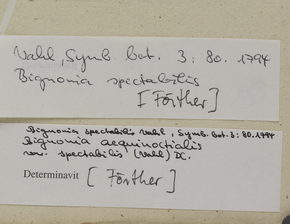 Vahl, Symb. bot. 3: 80. 1794
Bignonia spectabilis
[Förther]
Bignonia spectabilis Vahl, Symb. bot. 3: 80. 1794
Bignonia aequinoctialis
var. spectabilis (Vahl) DC.
Determinavit [Förther]